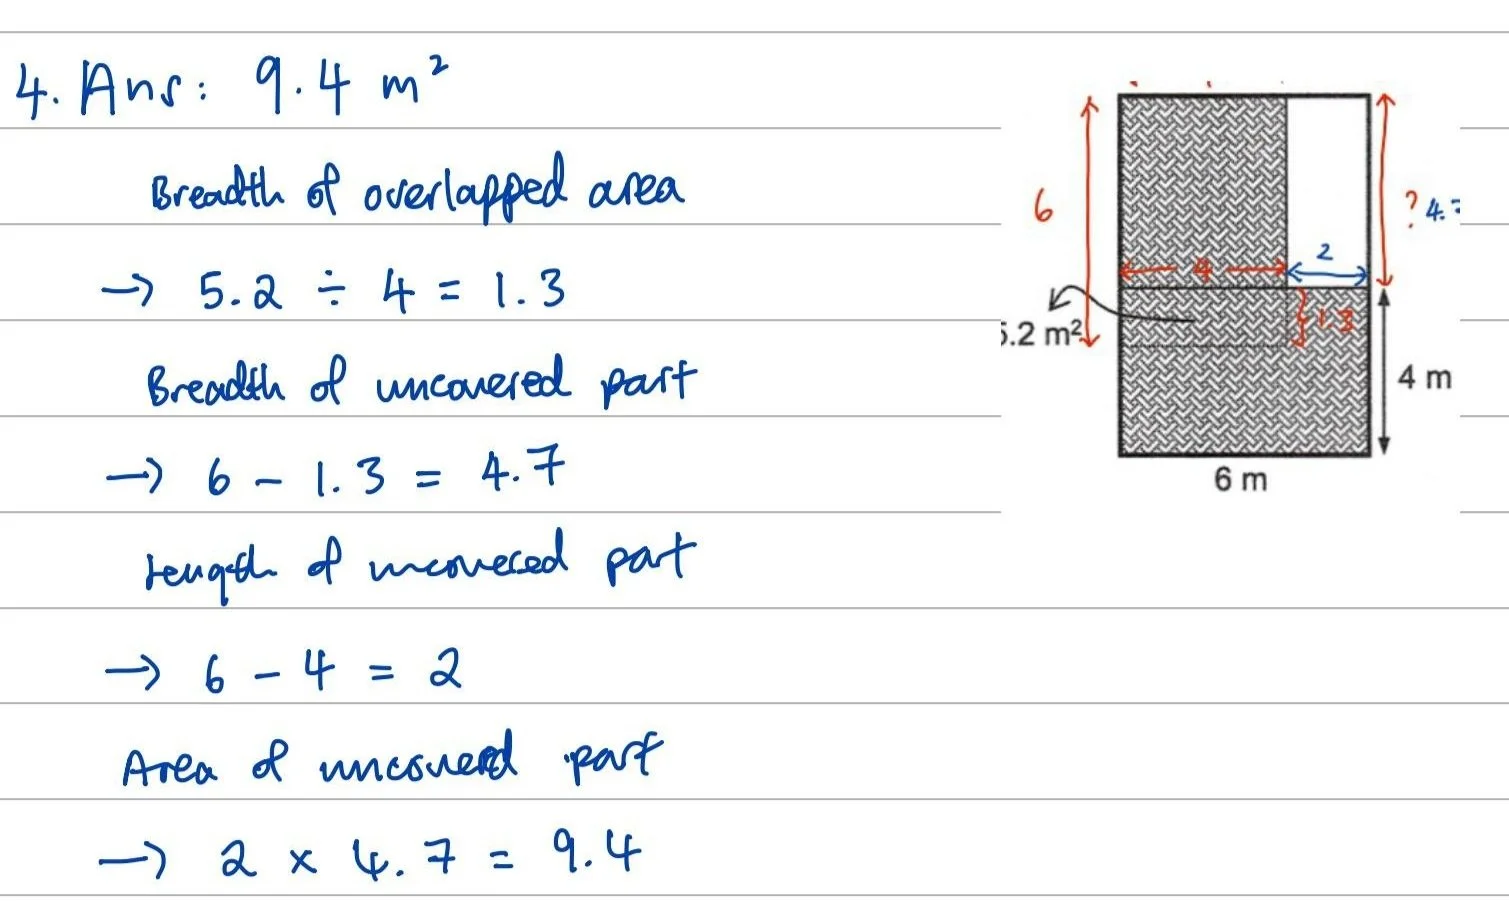 4. Ans: 9.4 m²
Breadth of overlapped area
→ 5.2 ÷ 4 = 1.3
Breadth of uncovered part
→ 6 - 1.3 = 4.7
Length of uncovered part
→ 6 - 4 = 2
Area of uncovered part
→ 2 × 4.7 = 9.4
6
? 4.
2
4
1.3
.2 m²
4 m
6 m